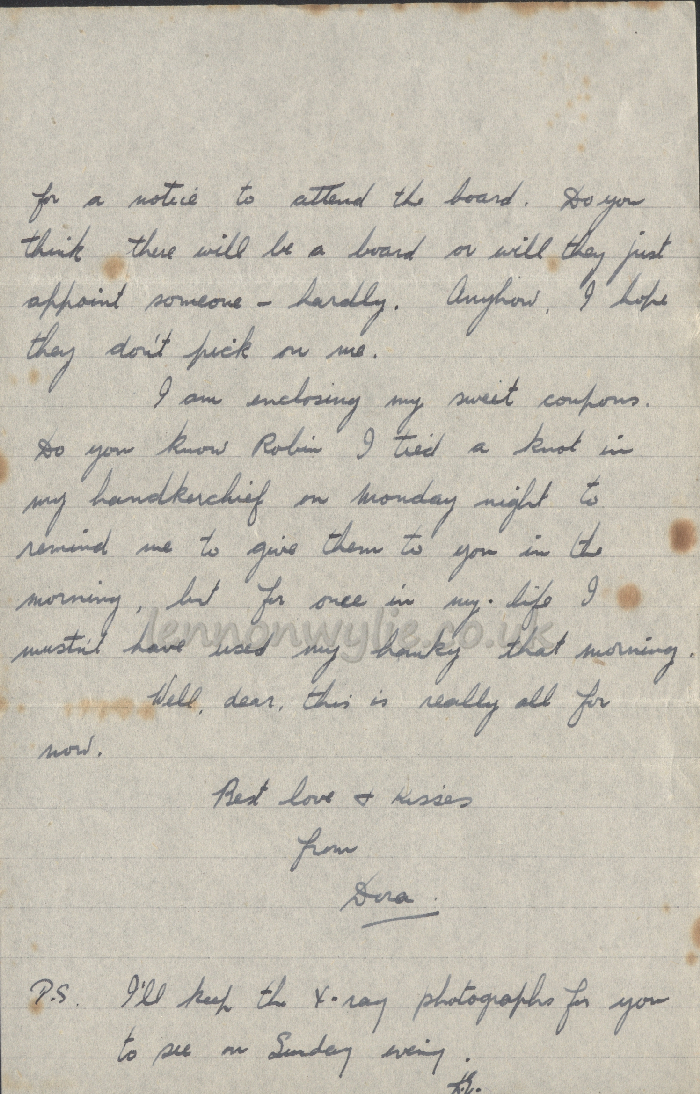 for a notice to attend the board. Do you
think there will be a board or will they just
appoint someone - hardly. Anyhow, I hope
they don't pick on me.
I am enclosing my sweet coupons.
Do you know Robin I tied a knot in
my handkerchief on Monday night to
remind me to give them to you in the
morning, but for once in my life I
mustn't have used my hanky that morning.
lennonwylie.co.uk
Well, dear, this is really all for
now.
Best love & kisses
from
Dora.
P.S. I'll keep the X-ray photographs for you
to see on Sunday evening.